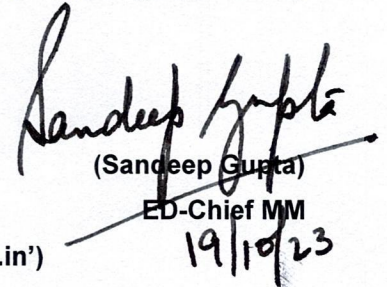 Sandeep Gupta
(Sandeep Gupta)
ED-Chief MM
19/10/23
.in’)